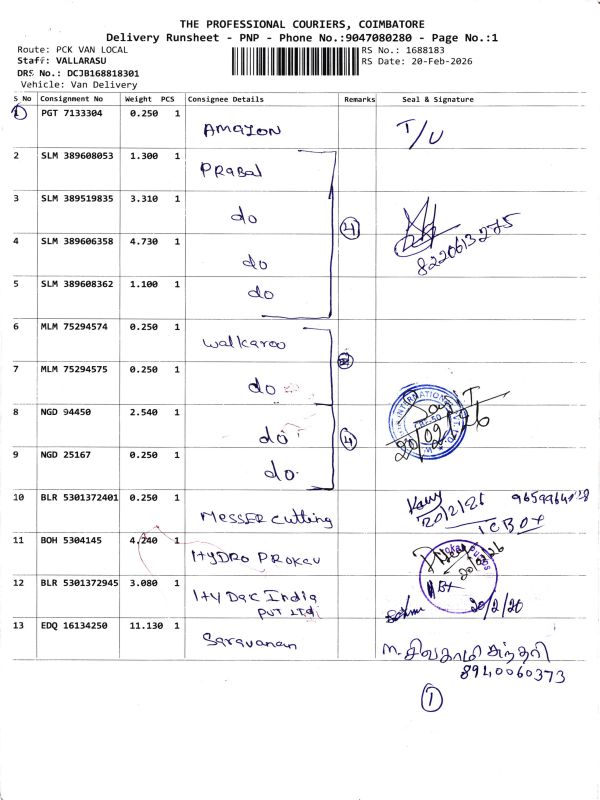 THE PROFESSIONAL COURIERS, COIMBATORE
Delivery Runsheet - PNP - Phone No.:9047080280 - Page No.:1
Route: PCK VAN LOCAL
RS No.: 1688183
Staff: VALLARASU
RS Date: 20-Feb-2026
DRS No.: DCJB168818301
Vehicle: Van Delivery
S No Consignment No Weight PCS Consignee Details Remarks Seal & Signature
1 PGT 7133304 0.250 1 AMAZON T/U
2 SLM 389608053 1.300 1 Prabal
3 SLM 389519835 3.310 1 do 4
4 SLM 389606358 4.730 1 do 8220613275
5 SLM 389608362 1.100 1 do
6 MLM 75294574 0.250 1 Walkaroo
7 MLM 75294575 0.250 1 do
8 NGD 94450 2.540 1 do 4 INTERNATIONAL
9 NGD 25167 0.250 1 do
10 BLR 5301372401 0.250 1 Messer Cutting 20/2/26
11 BOH 5304145 4.240 1 Hydro Prokav
12 BLR 5301372945 3.080 1 Hydac India PVT Ltd 20/2/20
13 EDQ 16134250 11.130 1 Saravanan
8940060373
1